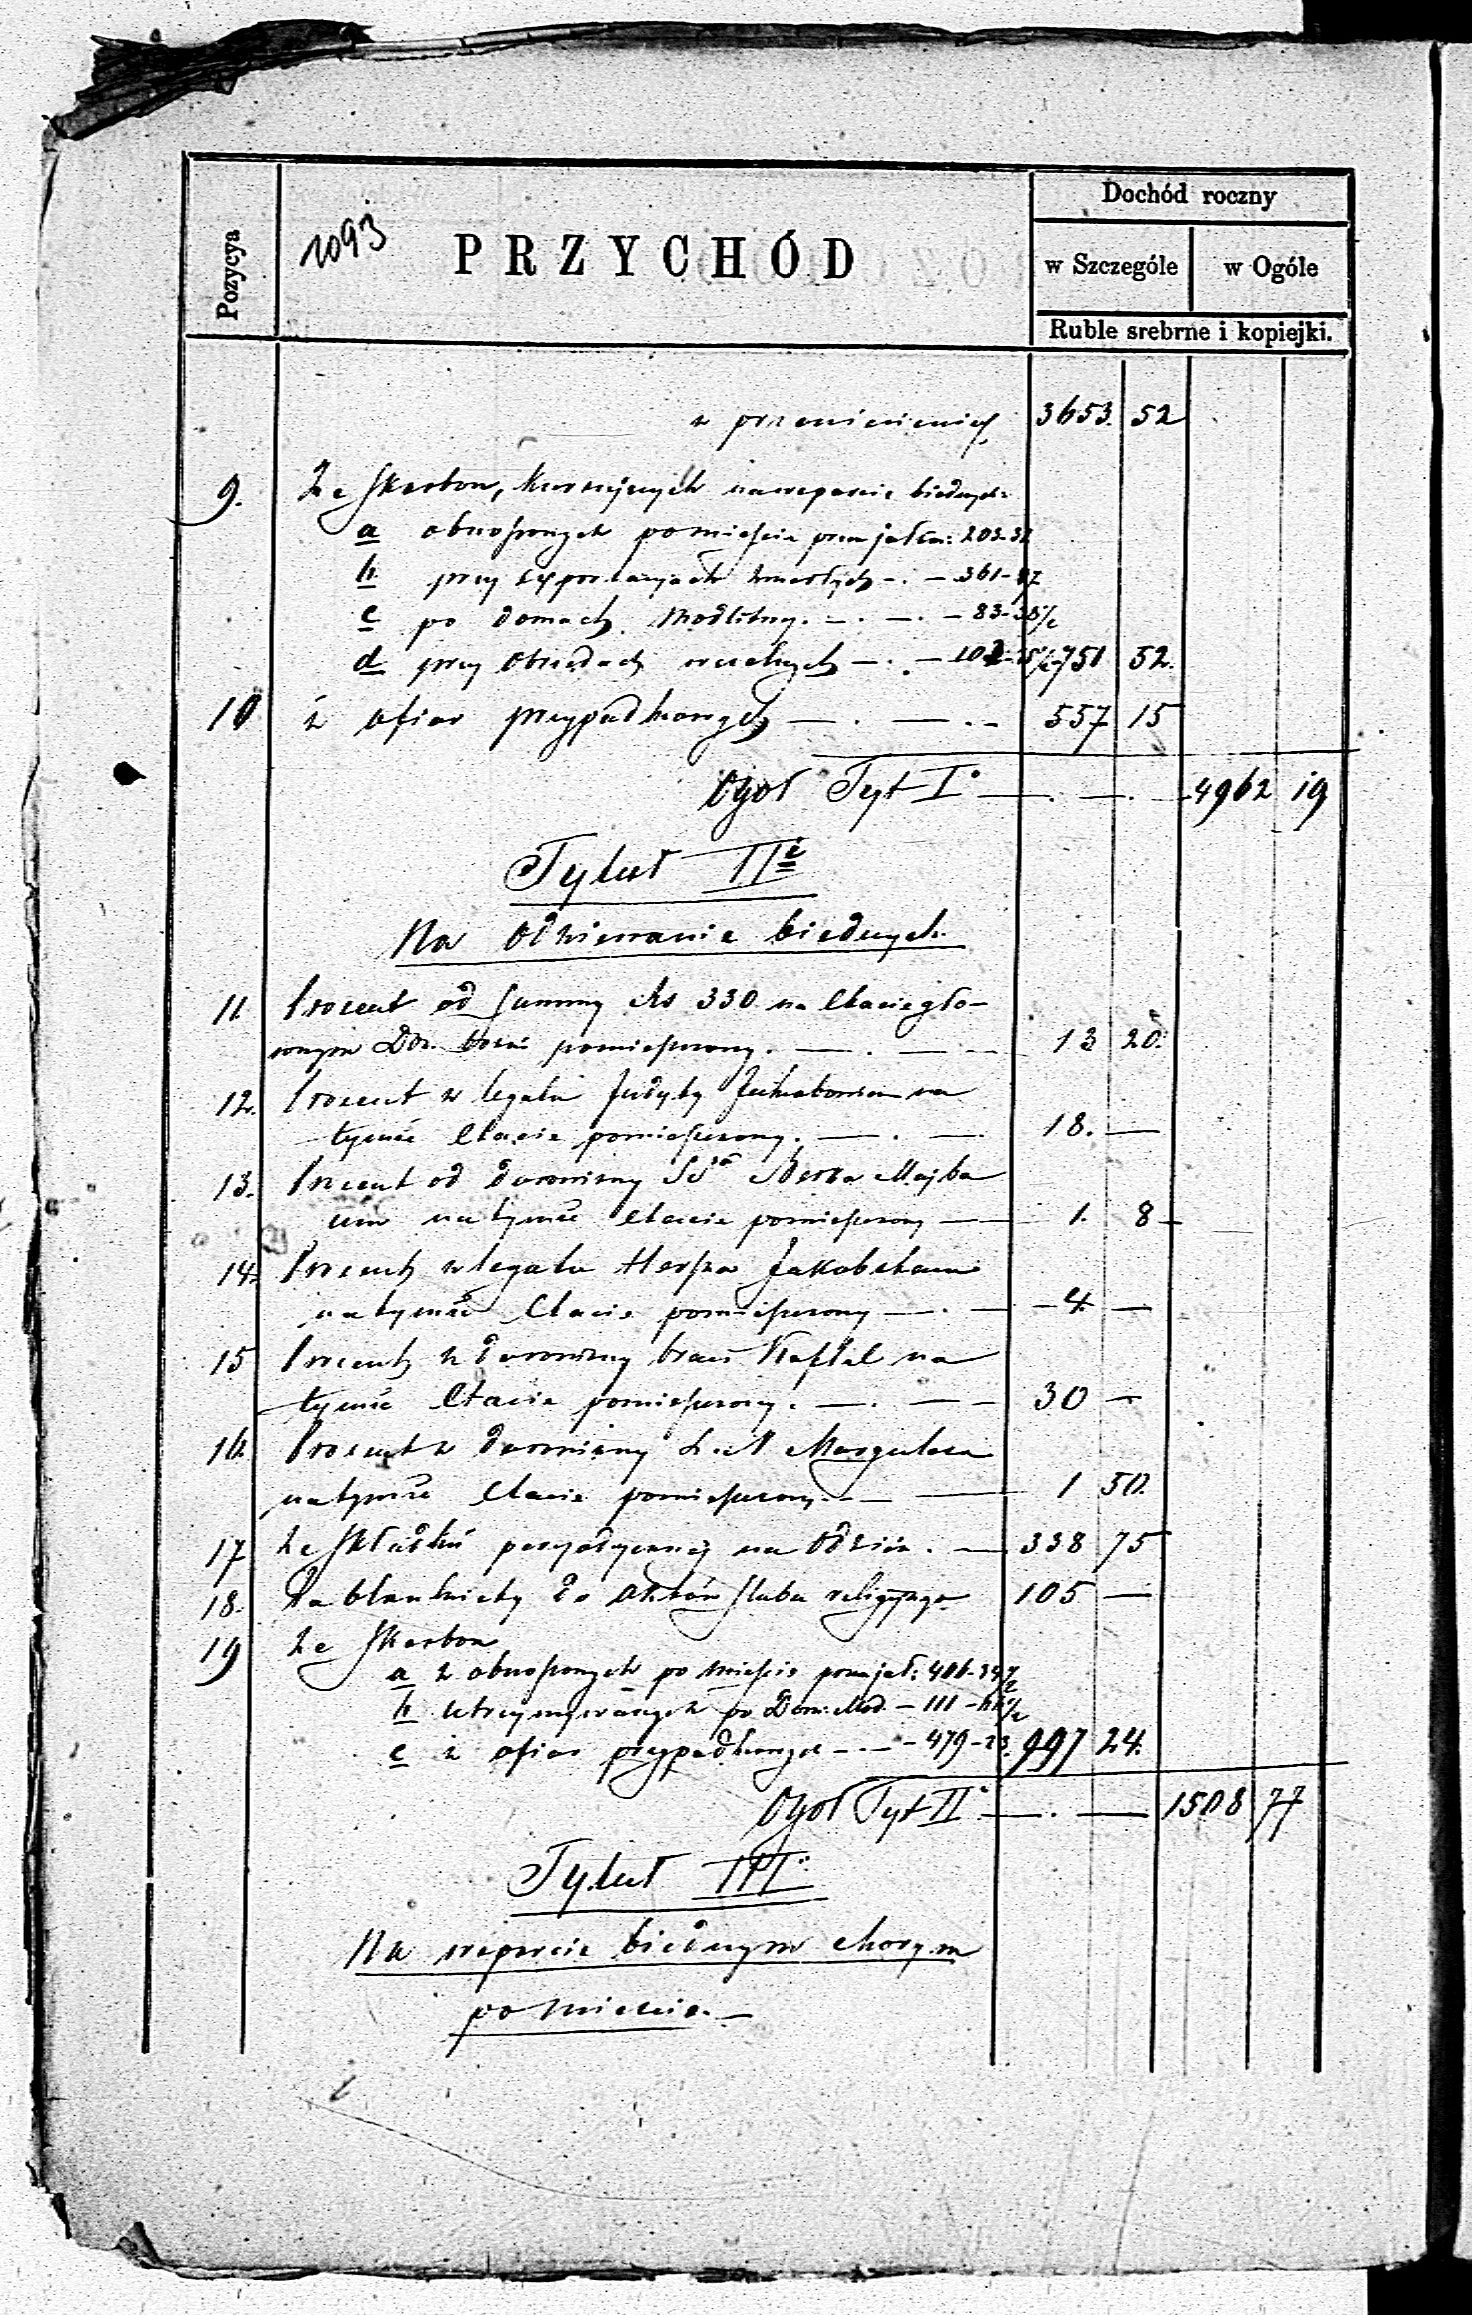 Pozycya
1093
PRZYCHÓD
Dochód roczny
w Szczególe w Ogóle
Ruble srebrne i kopiejki.
z przeniesienia 3653. 52
9. Ze skarbon, kursujących na wsparcie biednych
a obnoszonych po mieście przy jałm: 203.32
b. przy exportacyach zmarłych 361
c po domach modlitwy. 83-38½
d przy obrzędach 751 52.
10 z ofiar przypadkowych 557 15
Ogół Tyt I° 4962 19
Tytuł II
Na odziewanie biednych.
11. Procent od summy Rs 330 na Etacie głó-
wnym pomieszczony. 13 20.
12. Procent z legatu Judyty Jakubowicz na
tymże Etacie pomieszczony. 18. —
13. Procent od darowizny Berka Majba
um na tymże Etacie pomieszczony 1. 8
14. Procent z legatu Herszka
na tymże Etacie pomieszczony 4. —
15 Procent z darowizny braci Naftal na
tymże Etacie pomieszczony. 30 —
16. Procent z darowizny Margulesa
na tymże Etacie pomieszczony 1 50.
17 Ze składki peryodycznej na odzież. 338 75
18. Za blankiety do aktów ślubu religijnego 105 —
19 Ze skarbon
a z obnoszonych po mieście 406.34½
b utrzymywanych po Dom: Mod. 111
c z ofiar przypadkowych 479-23. 997 24.
Ogół Tyt II 1508 77
Tytuł III
Na wsparcie biednym chorym
po mieście.